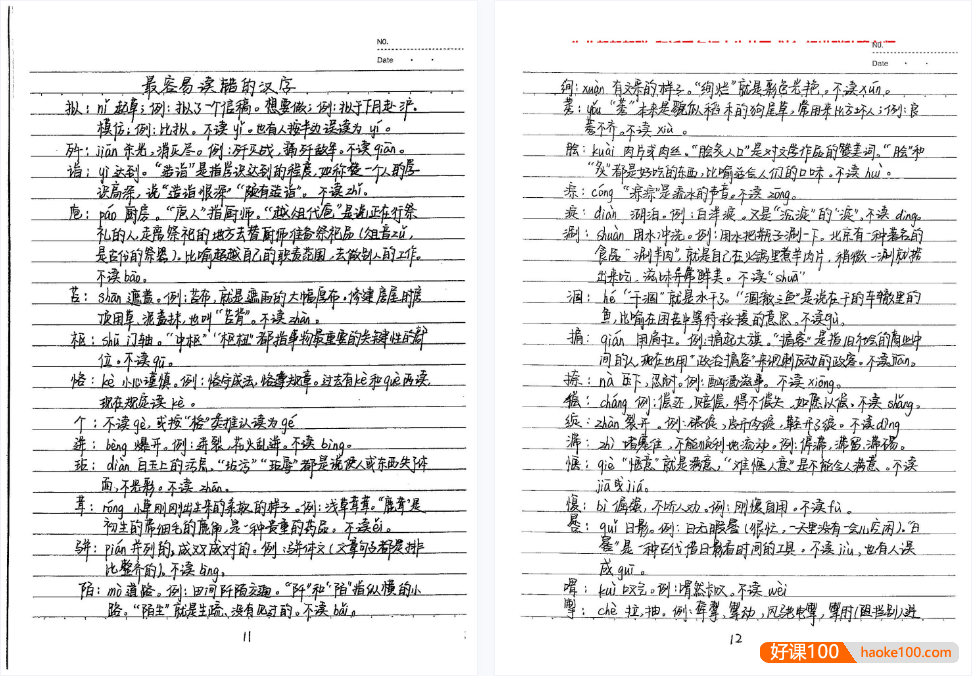 NO.
Date
最容易读错的汉字
拟：nǐ 起草；例：拟了个信稿。想要做；例：拟于下月赴沪。
模仿；例：比拟。不读yǐ。也有人按半边误读为yǐ。
歼：jiān 杀光，消灭尽。例：歼灭战，痛歼敌军。不读qiān。
诣：yì 达到。“造诣”是指所达到的程度，如称赞一个人的学
识高深，说“造诣很深”“颇有造诣”。不读zhǐ。
庖：páo 厨房。“庖人”指厨师。“越俎代庖”是说正在行祭
礼的人，走离祭祀的地方去替厨师准备祭祀品（俎音zǔ，
是古份的祭器）。比喻超越自己的职责范围，去做别人的工作。
不读bāo。
苫：shān 遮盖。例：苫布，就是遮雨的大幅厚布。修建房屋时房
顶用草、泥盖抹，也叫“苫背”。不读zhān。
枢：shū 门轴。“中枢”“枢纽”都指事物最重要的关键性的部
位。不读qū。
恪：kè 小心谨慎。例：恪守成法，恪遵规章。过去有kè和què两读
现在规定读kè。
个：不读gé，或按“格”类推认读为gé
迸：bèng 爆开。例：迸裂，花火乱迸。不读bìng。
玷：diàn 白玉上的污点，“玷污”“玷辱”都是说使人或东西失了体
面，不光彩。不读zhān。
茸：róng 小草刚刚出生来的柔软的样子。例：浅草茸茸。“鹿茸”是
初生的带细毛的鹿角，是一种贵重的药品。不读ěr。
骈：pián 并列的，成双成对的。例：骈体文（文章句子都是排
比整齐的）。不读bìng。
陌：mò 道路。例：田间阡陌交通。“阡”和“陌”指纵横的小
路。“陌生”就是生疏、没有见过的。不读bǎi。
11
NO.
Date
绚：xuàn 有文采的样子。“绚烂”就是彩色光艳。不读xún。
莠：yǒu “莠”本来是貌似稻禾的狗尾草，常用来比方坏人；例：良
莠不齐。不读xiù。
脍：kuài 肉片或肉丝。“脍炙人口”是对文学作品的赞美词。“脍”和
“炙”都是好吃的东西，比喻适合人们的口味。不读huì。
淙：cóng “淙淙”是流水的声音。不读zōng。
淀：diàn 湖泊。例：白洋淀。又是“沉淀”的“淀”，不读dìng。
涮：shuàn 用水冲洗。例：用水把瓶子涮一下。北京有一种著名的
食品“涮羊肉”，就是自己在火锅里煮羊肉片，稍微一涮就捞
出来吃，滋味异常鲜美。不读“shuā”
涸：hé “干涸”就是水干了。“涸辙之鱼”是说在干的车辙里的
鱼，比喻在困苦中等待救援的意思。不读gù。
掮：qián 用肩扛。例：掮起大旗。“掮客”是指旧社会的商业中
间的人，现在也用“政治掮客”来讽刺反动的政客。不读jiān。
捺：nà 压下，忍耐。
偿：cháng 例：偿还，赔偿，得不偿失，如愿以偿。不读shǎng。
绽：zhàn 裂开。不读dìng
滞：zhì 堵塞住，不能顺利地流动。例：停滞，滞留，滞销。
惬：qiè “惬意”就是满意。“难惬人意”是不能令人满意。不读
jiā或jiá。
愎：bì 固执，不听人劝。例：刚愎自用。不读fù。
晷：guǐ 日影。例：日无暇晷（很忙，一天里没有一会儿空闲）。“日
晷”是一种古代借日影看时间的工具。不读jiù，也有人误
成guī。
喟：kuì 叹气。例：喟然长叹。不读wèi
掣：chè 拉，抽。
12
好课100
haoke100.com